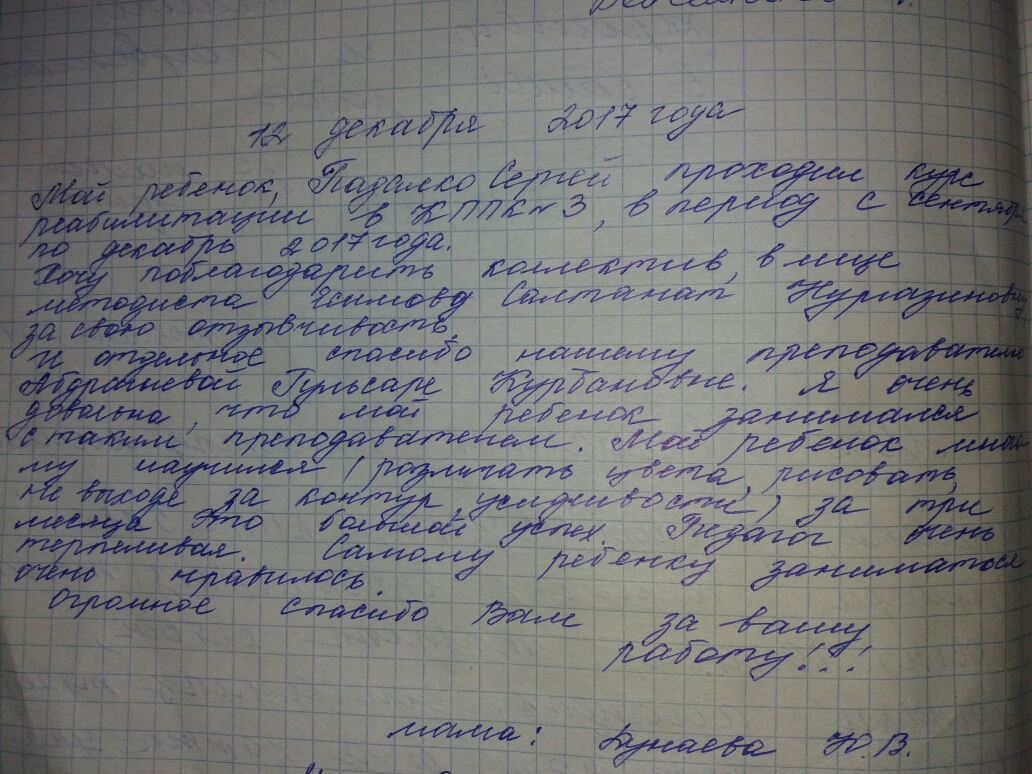 12 декабря 2017 года
Мой ребенок, Падалко Сергей проходил курс
реабилитации в КППК №3, в период с сентября
по декабрь 2017 года.
Хочу поблагодарить коллектив, в лице
методиста Салтанат Нургазиновну
за свою отзывчивость,
и отдельное спасибо нашему преподавателю
Абдрашевой Гульсаре Курбановне. Я очень
довольна, что мой ребенок занимался
с таким преподавателем. Мой ребенок много
му научился (различать цвета, рисовать,
не выходя за контур, усидчивости) за три
месяца это большой успех. Педагог очень
терпеливая. Самому ребенку заниматься
очень нравилось.
Огромное спасибо Вам за вашу
работу!!!
мама: Дунаева Ю.В.